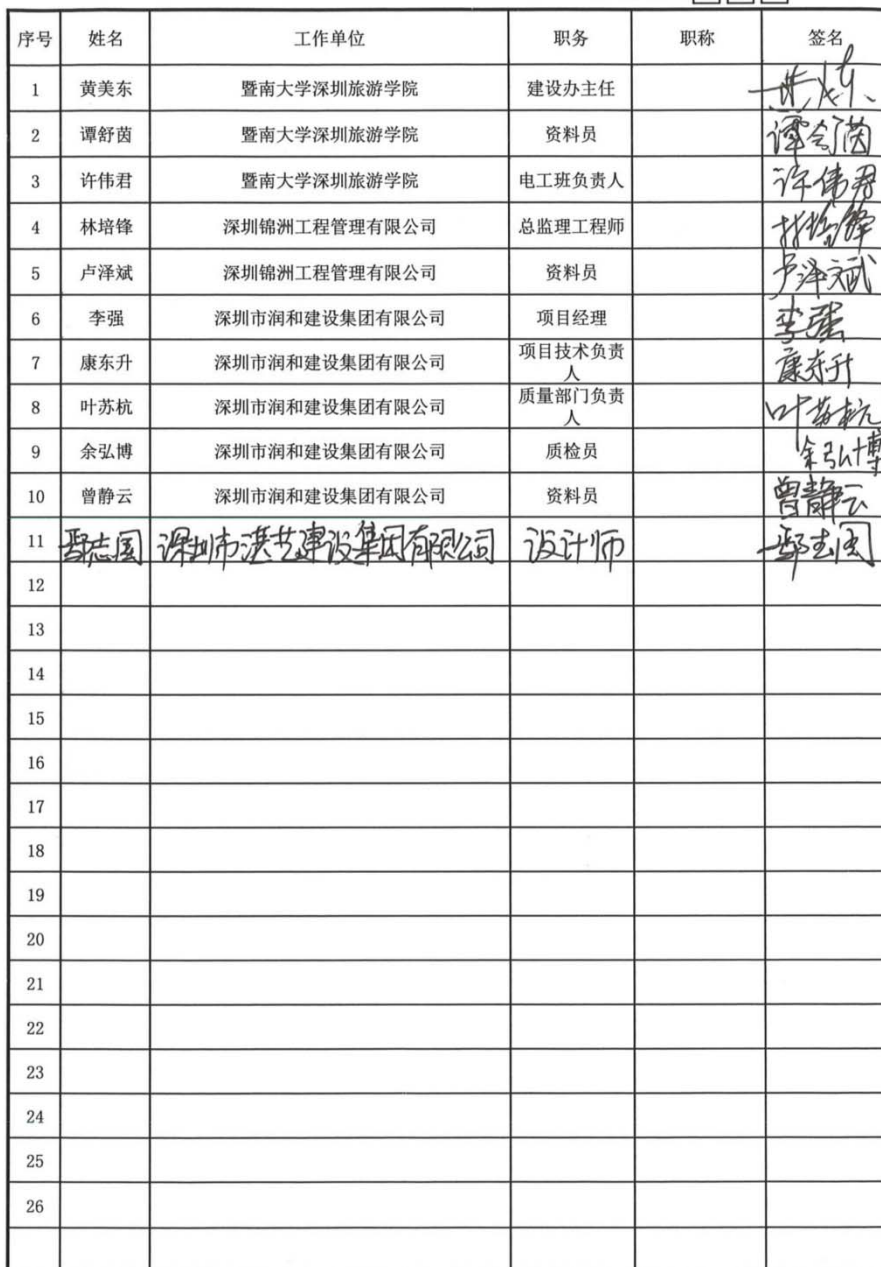 序号 姓名 工作单位 职务 职称 签名
1 黄美东 暨南大学深圳旅游学院 建设办主任
2 谭舒茵 暨南大学深圳旅游学院 资料员 谭舒茵
3 许伟君 暨南大学深圳旅游学院 电工班负责人 许伟君
4 林培锋 深圳锦洲工程管理有限公司 总监理工程师 林培锋
5 卢泽斌 深圳锦洲工程管理有限公司 资料员 卢泽斌
6 李强 深圳市润和建设集团有限公司 项目经理 李强
7 康东升 深圳市润和建设集团有限公司 项目技术负责人 康东升
8 叶苏杭 深圳市润和建设集团有限公司 质量部门负责人 叶苏杭
9 余弘博 深圳市润和建设集团有限公司 质检员 余弘博
10 曾静云 深圳市润和建设集团有限公司 资料员 曾静云
11 鄢志国 深圳市湛艺建设集团有限公司 设计师 鄢志国
12
13
14
15
16
17
18
19
20
21
22
23
24
25
26